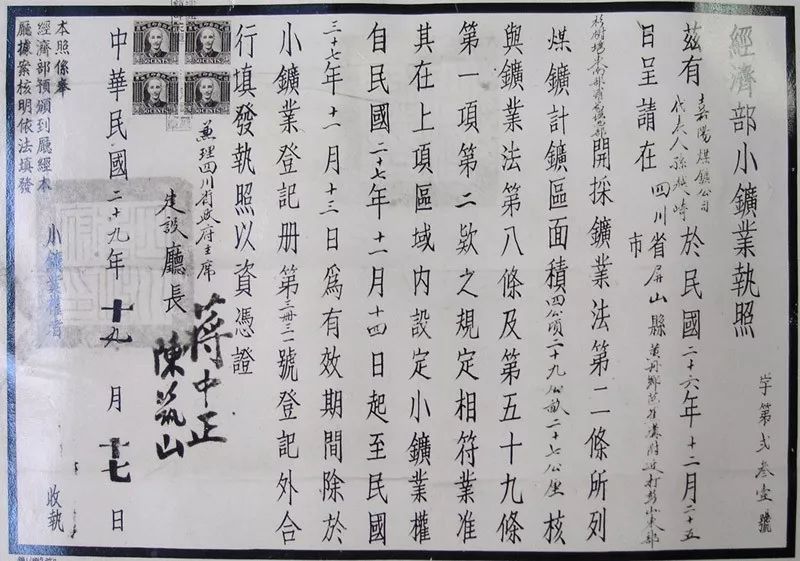 經濟部小鑛業執照
字第弍叁壹號
茲有嘉陽煤鑛公司代表人孫越崎於民國二十六年十二月二十五
日呈請在四川省市屏山縣黃丹鄉
開採鑛業法第二條所列
煤鑛計鑛區面積四公頃二十九公畝二十七公厘核
與鑛業法第八條及第五十九條
第一項第二欵之規定相符業准
其在上項區域内設定小鑛業權
自民國二十七年十一月十四日起至民國
三十七年十一月十三日爲有效期間除於
小鑛業登記册第三册三一號登記外合
行填發執照以資憑證
兼理四川省政府主席 蔣中正
建設廳長 陳筑山
中華民國二十九年十九月十七日
小鑛業權者 收執
本照係奉
經濟部預頒到廳經本
廳據案核明依法填發
50 CENTS